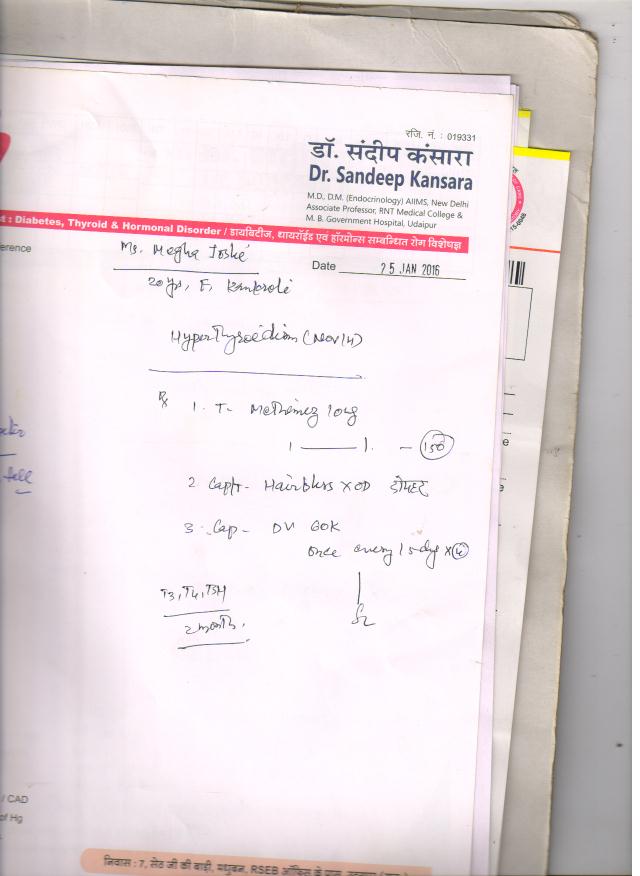 रजि. नं. : 019331
डॉ. संदीप कंसारा
Dr. Sandeep Kansara
M.D., D.M. (Endocrinology) AIIMS, New Delhi
Associate Professor, RNT Medical College &
M. B. Government Hospital, Udaipur
: Diabetes, Thyroid & Hormonal Disorder / डायबिटीज, थायरॉईड एवं हॉरमोन्स सम्बन्धित रोग विशेषज्ञ
erence
Ms. Megha Joshi
Date 25 JAN 2016
20 yrs, F, Kankroli
Hyperthyroidism (Nov 14)
Rx 1. T- Methimez 10mg
1 — 1. - 150
2. Cap- Hairbless X OD दोपहर
3. Cap- DV 60K
once every 15 days X 4
T3, T4, TSH
2 month.
/ CAD
of Hg
निवास : 7, सेठ जी की बाड़ी, मधुबन, RSEB ऑफिस के पास